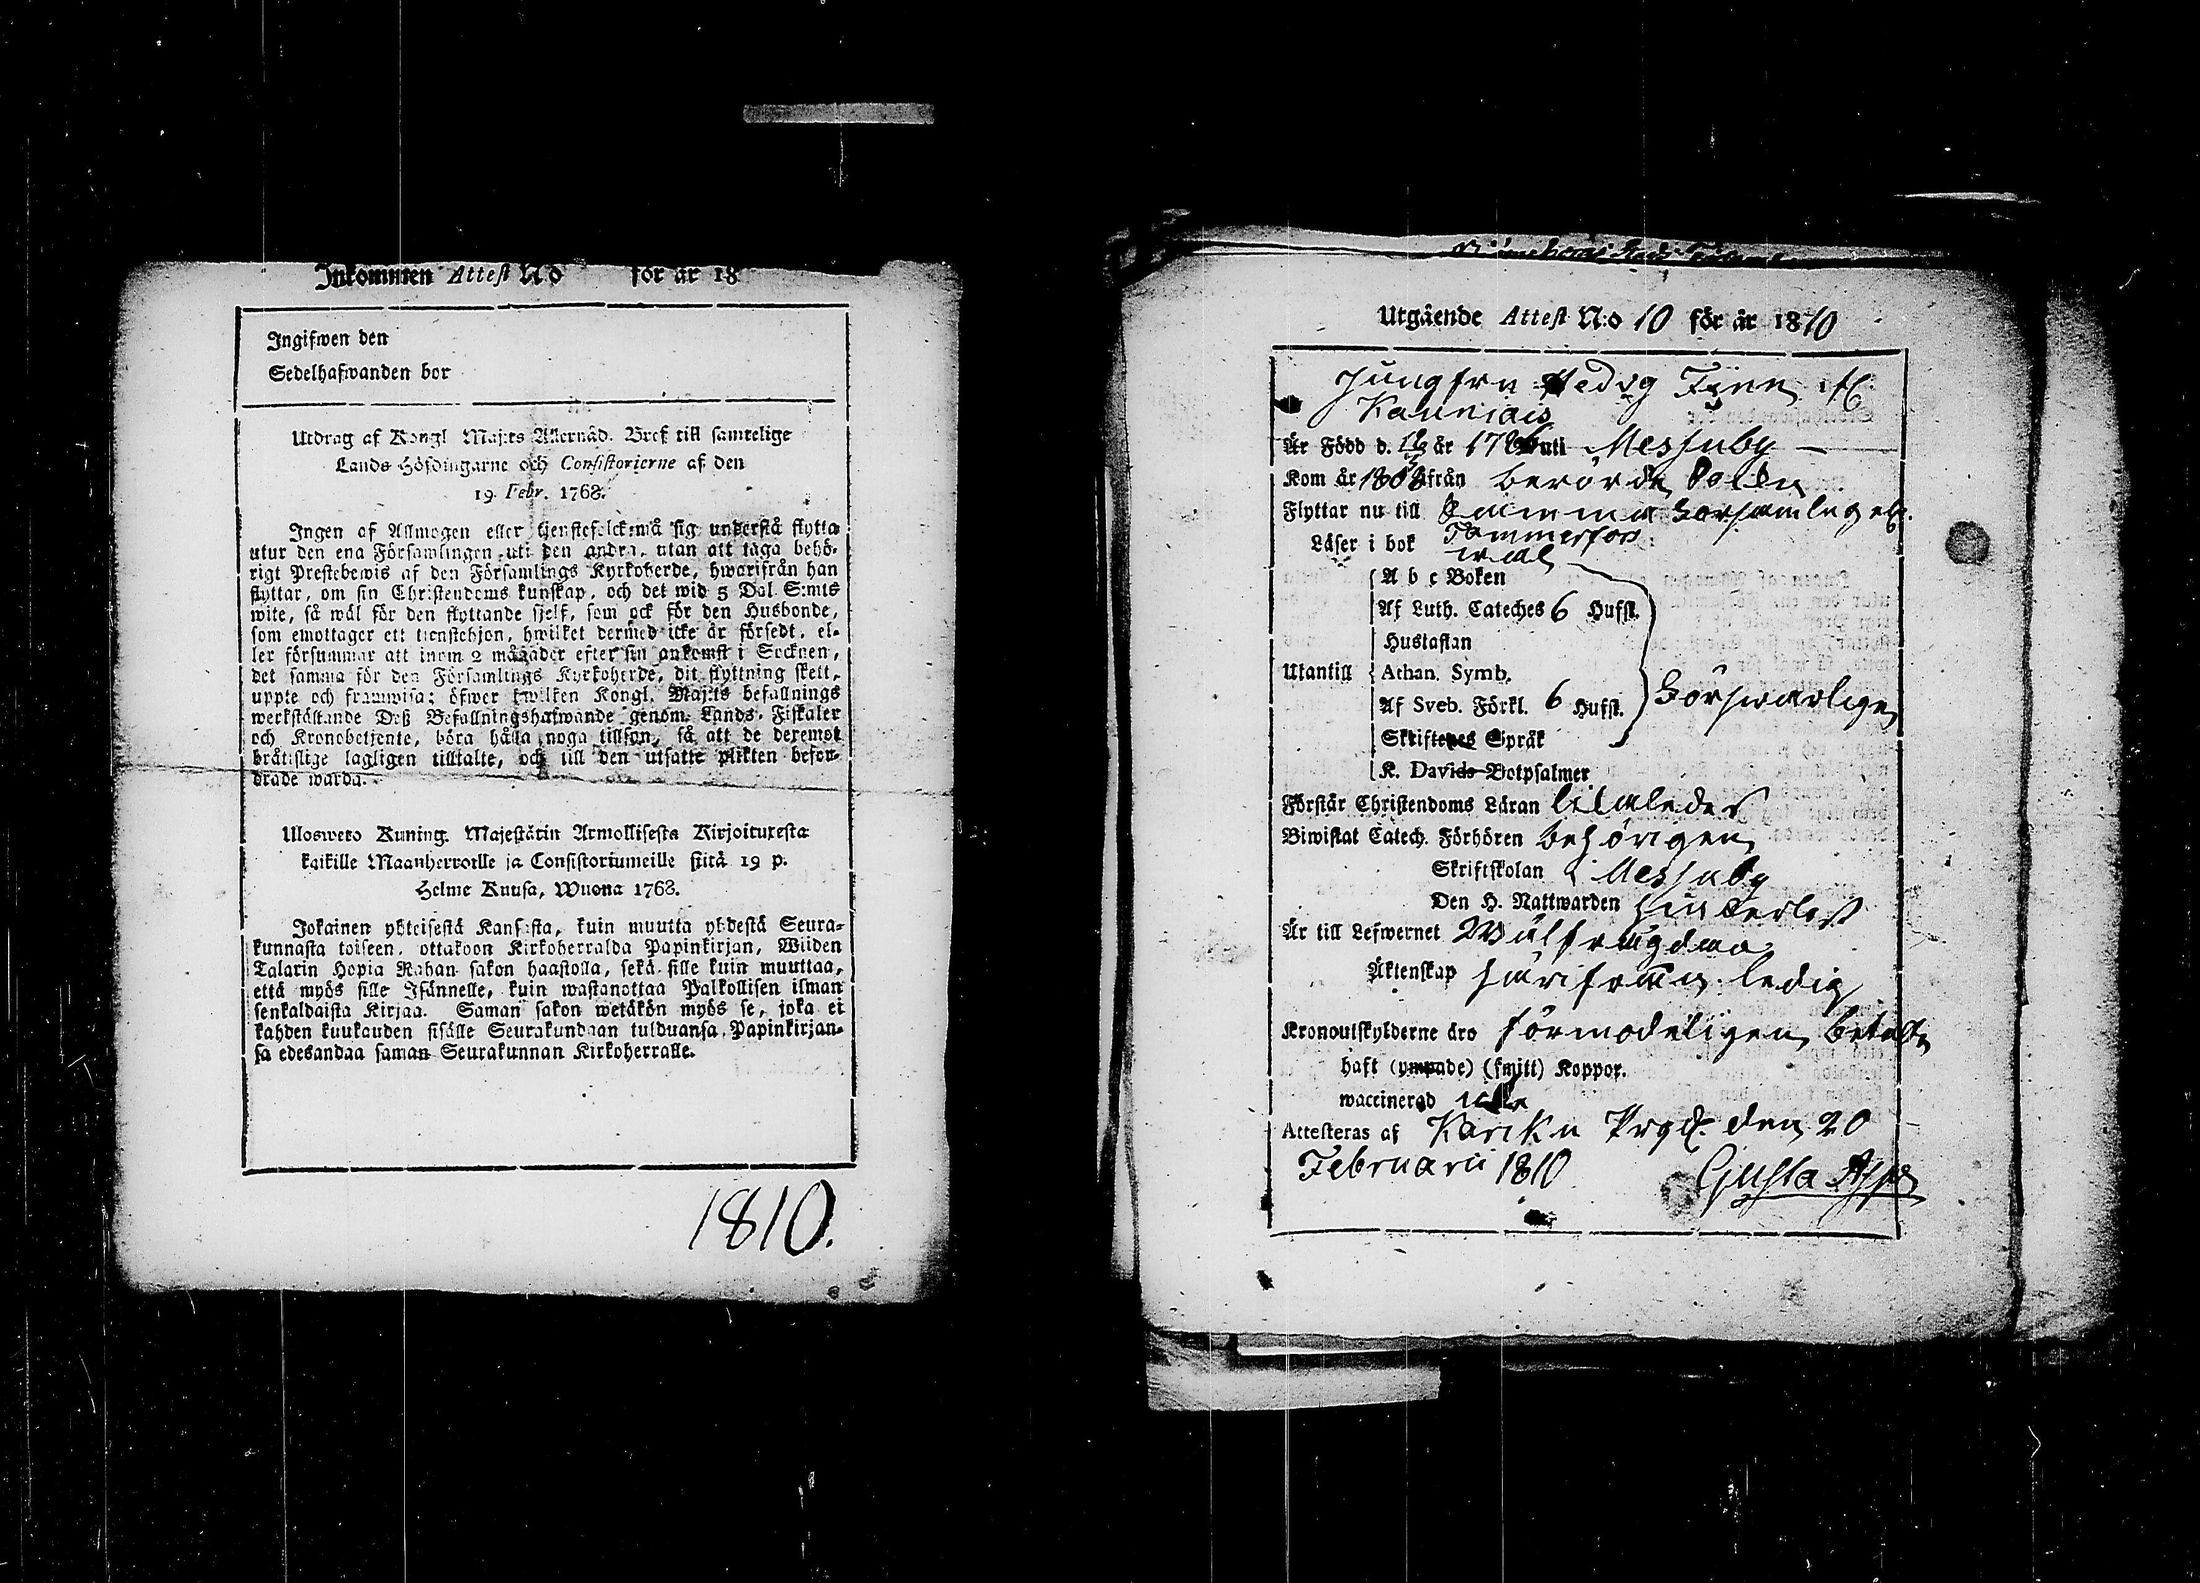 Inkommen Attest N:o för år 18
Ingifwen den
Sedelhafwanden bor
Utdrag af Kongl Maj:ts Allernåd. Bref till samtelige
Lands Höfdingarne och Consistorierne af den
19 Febr. 1768.
Ingen af Allmogen eller tjenstefolck må sig understå flytta
utur den ena Församlingen uti den andra, utan att taga behö-
rigt Prestebewis af den Församlings Kyrkoherde, hwarifrån han
flyttar, om sin Christendoms kunskap, och det wid 5 Dal. S:mts
wite, så wäl för den flyttande sjelf, som ock för den Husbonde,
som emottager ett tienstehjon, hwilket dermed icke är försedt, el-
ler försummar att inom 2 månader efter sin ankomst i Socknen,
det samma för den Församlings Kyrkoherde, dit flyttning skett,
uppte och framwisa; öfwer hwilken Kongl. Maj:ts befallnings
werkställande Deß Befallningshafwande genom Lands Fiskaler
och Kronobetjente, böra hålla noga tillsyn, så att de deremot
brätislige lagligen tilltalte, och till den utsatte plikten befor-
drade warda.
Ulosweto Kuning. Majestätin Armollisesta Kirjoituxesta
kaikille Maanherroille ja Consistoriumeille siitä 19 p.
Helme Kuusa, Wuona 1768.
Jokainen yhteisestä Kansasta, kuin muutta yhdestä Seura-
kunnasta toiseen, ottakoon Kirkoherralda Papinkirjan, Wiiden
Talarin Hopia Rahan sakon haastolla, sekä sille kuin muuttaa,
että myös sille Isännelle, kuin wastanottaa Palkollisen ilman
senkaldaista Kirjaa. Saman sakon wetäkön myös se, joka ei
kahden kuukauden sisälle Seurakundaan tulduansa, Papinkirjan-
sa edesandaa saman Seurakunnan Kirkoherralle.
1810.
Utgående Attest N:o 10 för år 1810
Jungfru Hedvig Finn
Kauniais
Är Född d. år 178 uti Messuby
Kom år 1808 ifrån berörde
Flyttar nu till Samma Församling
Läser i bok Tammerfors
wäl
A b c Boken
Af Luth. Cateches 6 Hufst.
Hustaflan
Utantill Athan. Symb.
Af Sveb. Förkl. 6 Hufst. Förswarligen
Skriftenes Språk
K. Davids Botpsalmer
Förstår Christendoms Läran
Biwistat Catech. Förhören behörigen
Skriftskolan i Messuby
Den H. Nattwarden
Är till Lefwernet Wälfrägdad
Äktenskap härifrån ledig
Kronoutskylderne äro förmodeligen betalte
haft (ympade) (smitt) Koppor.
waccinerad icke
Attesteras af Karcku Prgd. den 20
Februarii 1810 Gusta